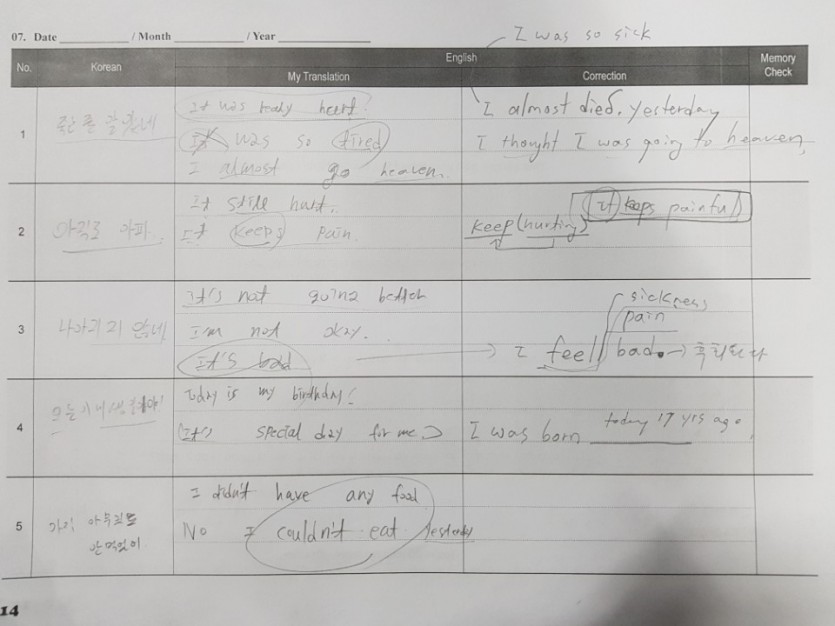 07. Date / Month / Year
I was so sick
No. Korean English Memory Check
My Translation Correction
1
죽는 줄 알았네
It was really heart?
It was so tired
I almost go heaven.
I almost died. yesterday
I thought I was going to heaven,
2
아직도 아파
It still hurt.
It keeps pain.
keep (hurting)
(it keeps painful)
3
나아지지 않네
It's not going better
I'm not okay.
It's bad
sickness
pain
I feel bad. → 후회하다
4
Today is my birthday!
(It's special day for me.)
I was born today 17 yrs ago.
5
거의 아무것도
안 먹었어
I didn't have any food
No I couldn't eat yesterday
14